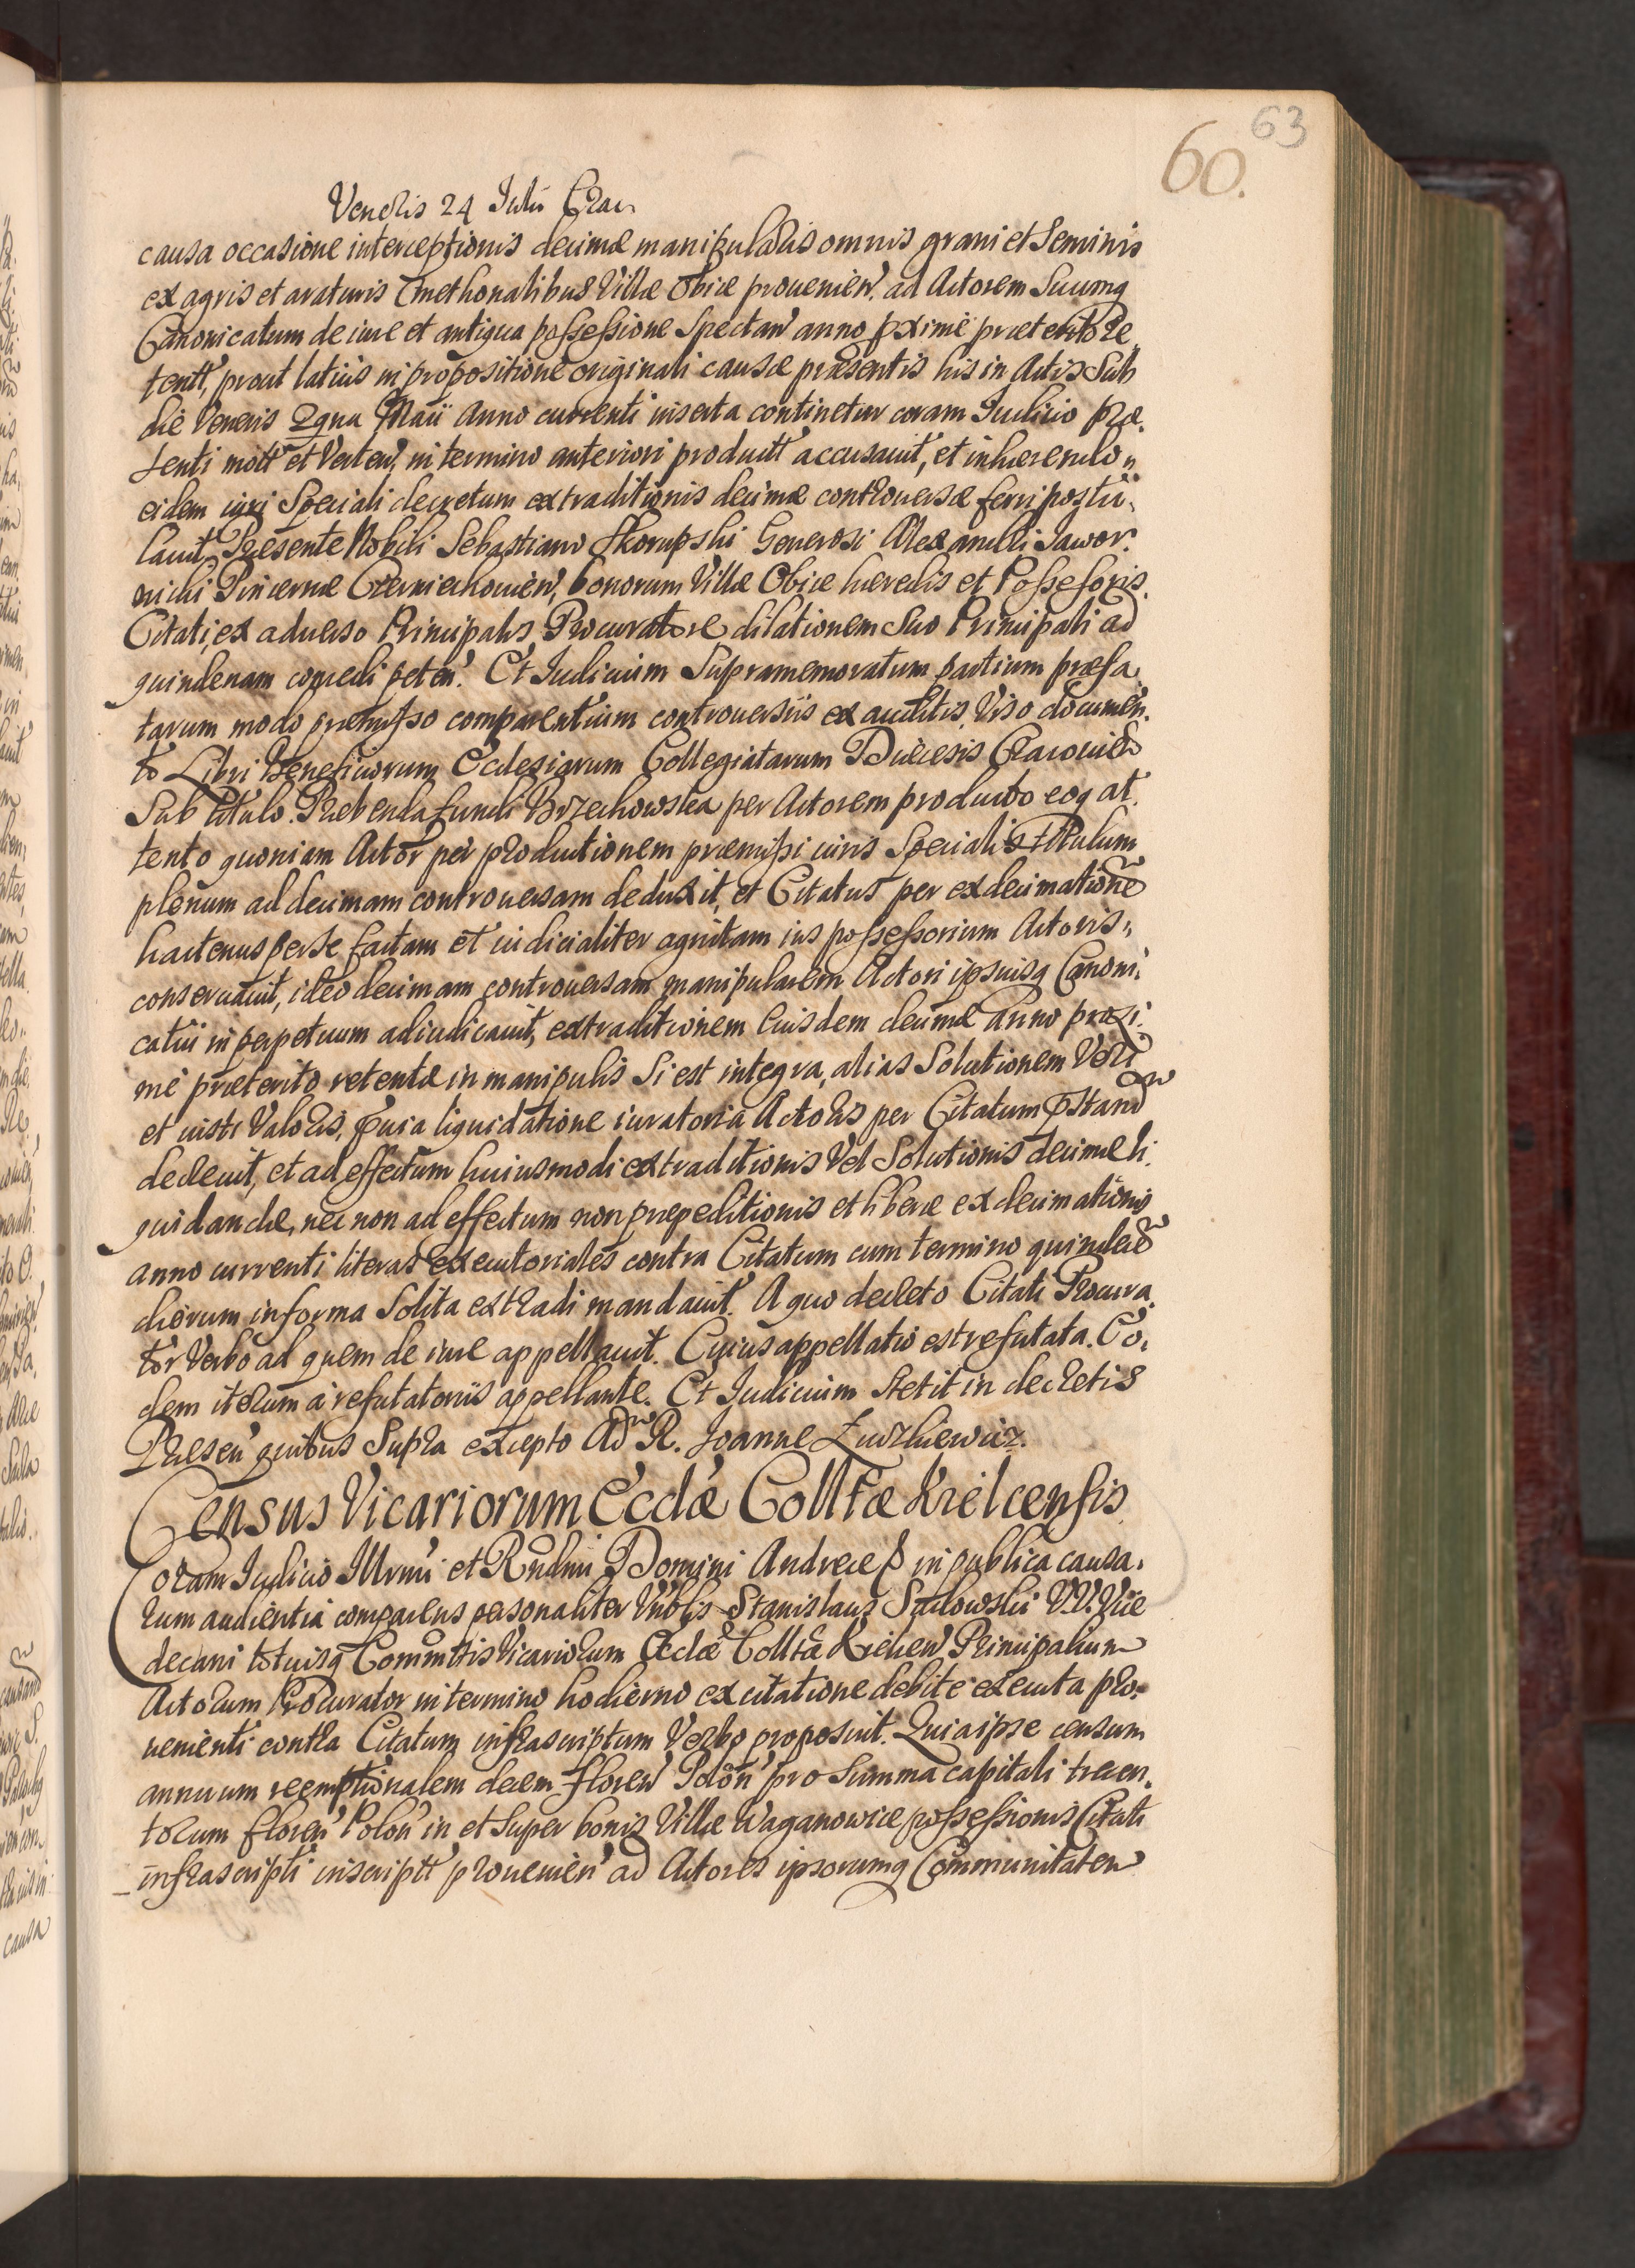 63
60.
Veneris 24 Julii Crac
causa occasione interceptionis decimæ manipularis omnis grani et Seminis
ex agris et araturis Cmethonalibus Villæ Obice prouenien. ad Actorem Suumq
Canonicatum de iure et antiqua possessione Spectan anno pxime præterito re
tentt, prout latius in propositione originali causæ præsentis his in Actis Sub
die Veneris 29na Maii Anno currenti inserta continetur coram Iudicio præ.
senti mott et Verten, in termino anteriori productt accusauit, et inhærendo
eidem iuri Speciali decretum extraditionis decimæ controuersæ ferri postu,
lauit, Præsente Nobili Sebastiano Skorupski Generosi Alexandri Jawor.
nicki Pincernæ Czerniechouien, bonorum Villæ Obice hæredis et Possessoris.
Citati, ex aduerso Principalis Procuratore dilationem Suo Principali ad
quindenam concedi peten. Et Iudicium Supramemoratum partium præfa
tarum modo præmisso comparentium controuersiis exauditis, Viso documen.
to Libri Beneficiorum Ecclesiarum Collegiatarum Diæcesis Cracouien
Sub titulo. Præbenda fundi Brzechowska per Actorem producto eoq at
tento quoniam Actor per productionem præmissi iuris Specialis titulum
plenum ad decimam controuersam deduxit, et Citatus per exdecimatione
hactenus per se factam et iudicialiter agnitam ius possessorium Actoris,
conseruauit, ideo decimam controuersam manipularem Actori ipsiusq Canoni,
catui in perpetuum adiudicauit, extraditionem Eiusdem decimæ anno proxi.
me præterito retentæ in manipulis Si est integra, alias Solutionem Veri
et iusti Valoris, præuia liquidatione iuratoria Actoris per Citatum pstand
decreuit, et ad effectum huiusmodi extraditionis Vel Solutionis decimæ li.
quidandæ, nec non ad effectum non præpeditionis et liberæ exdecimationis
anno currenti literas executoriales contra Citatum cum termino quindeci
dierum in forma Solita extradi mandauit. A quo decreto Citati Procura
tor Verbo ad quem de iure appellauit. Cuius appellatio est refutata. Eo,
dem iterum a refutatoriis appellante. Et Iudicium Stetit in decretis
Præsen quibus Supra excepto Ad R. Joanne Łuczkiewicz.
Census Vicariorum Ecclæ Colltæ Kielcensis
Coram Iudicio Illrmi et Rndmi Domini Andreæ P in publica causa.
rum audientia comparens personaliter Vnblis Stanislaus Sadowski V.V. Vice
decani totiusq Commttis Vicariorum Ecclæ Colltæ Kielcen Principalium
Actorum Procurator in termino hodierno ex citatione debite executa pro
uenienti contra Citatum infrascriptum Verbo proposuit. Quia ipse censum
annuum reemptionalem decem floren Polon pro Summa capitali trecen.
torum floren Polon in et Super bonis Villæ Waganowice possessionis Citati
infrascripti inscriptt prouenien ad Actores ipsorumq Communitatem